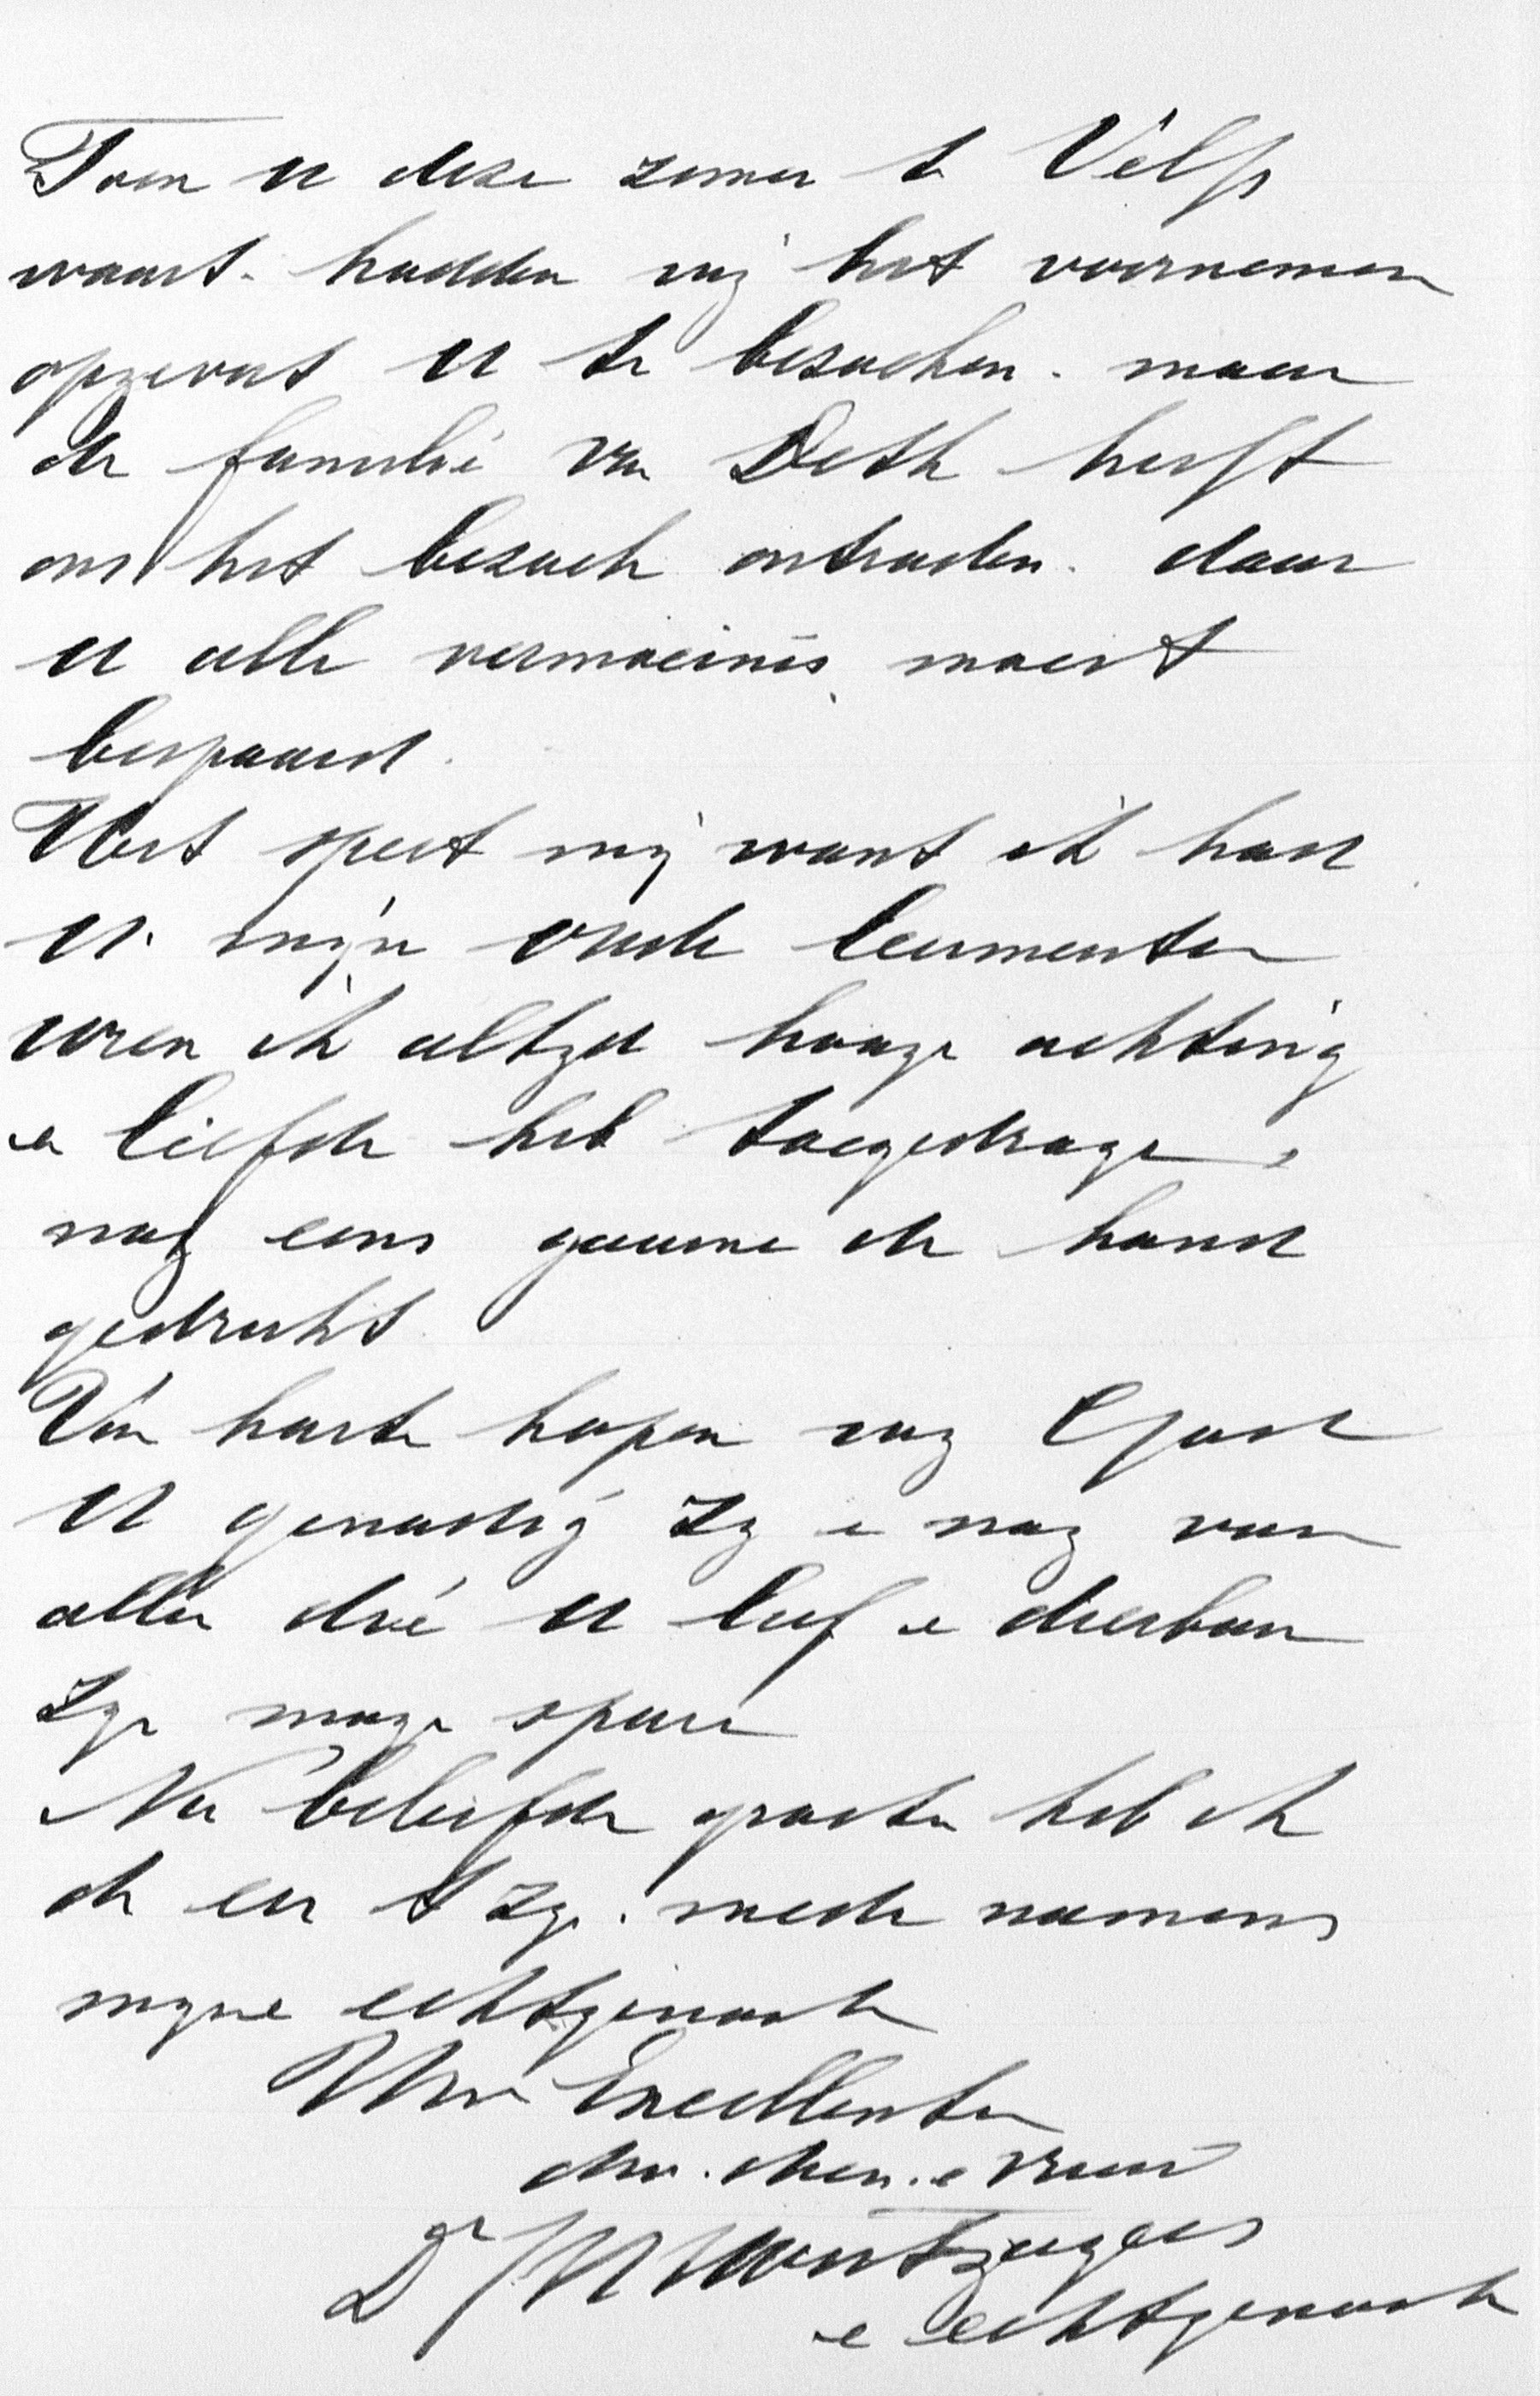 Toen u deze zomer te Velp
waart. hadden wij het voornemen
opgevat u te bezoeken. maar
de familie van Deth heeft
ons het bezoek ontraden. daar
u alle vermoeinis moest
bespaard.
Het speet mij want ik had
U. mijn oude leermeester
wien ik altijd hooge achting
en liefde heb toegedragen,
nog eens gaarne de hand
gedrukt.
Van harte hopen wij God
U genadig zij en nog van
allen die U lief en dierbaar
zijn moge sparen
Na beleefde groeten heb ik
de eer te zijn. mede namens
mijne echtgenoote
Uwe Excellentie
dw. dien. en vriend
Dr
e echtgenoote